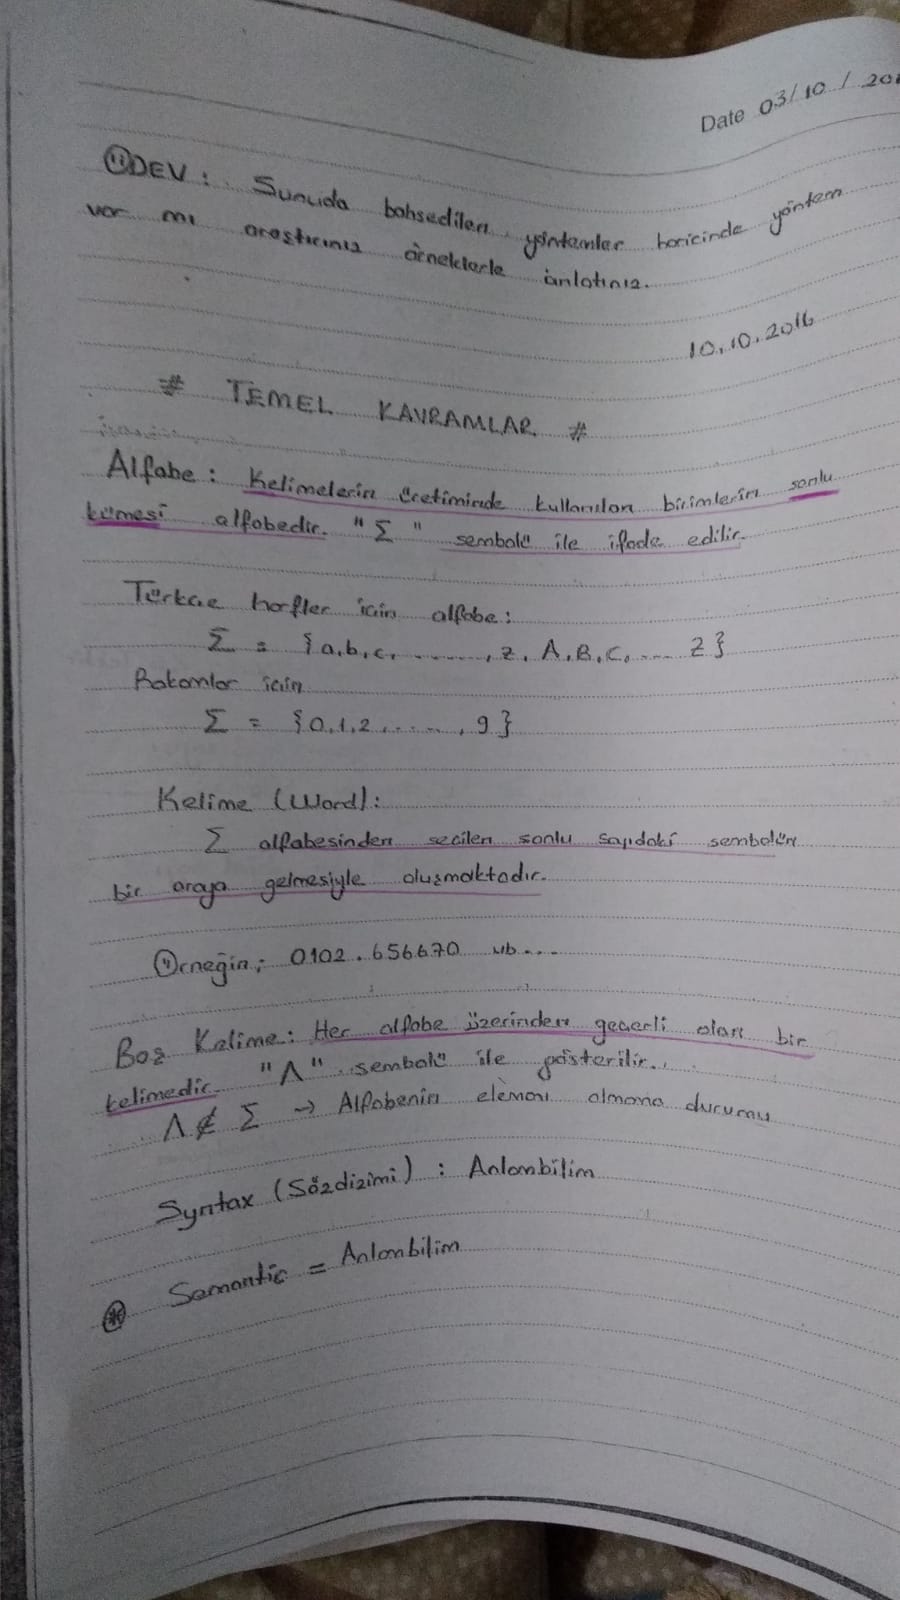 Date 03/10/20
ÖDEV: Sunuda bahsedilen yöntemler haricinde yöntem
var mı araştırınız örneklerle anlatınız.
10.10.2016
# TEMEL KAVRAMLAR #
Alfabe: Kelimelerin üretiminde kullanılan birimlerin sonlu
kümesi alfabedir. "Σ" sembolü ile ifade edilir.
Türkçe harfler için alfabe:
Σ = {a,b,c, ......., z, A,B,C, .... Z}
Rakamlar için
Σ = {0,1,2 ......, 9}
Kelime (Word):
Σ alfabesinden seçilen sonlu sayıdaki sembolün
bir araya gelmesiyle oluşmaktadır.
Örneğin; 0102.656670 vb...
Boş Kelime: Her alfabe üzerinden geçerli olan bir
kelimedir. "Λ" sembolü ile gösterilir.
Λ ∉ Σ → Alfabenin elemanı olmama durumu
Syntax (Sözdizimi) : Anlambilim
Semantic = Anlambilim